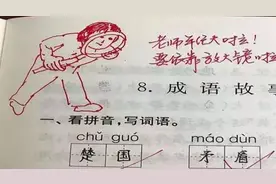 老师年纪大啦！
要依靠放大镜啦
8. 成语故事
一、看拼音，写词语。
chǔ guó
máo dùn
楚国
矛盾